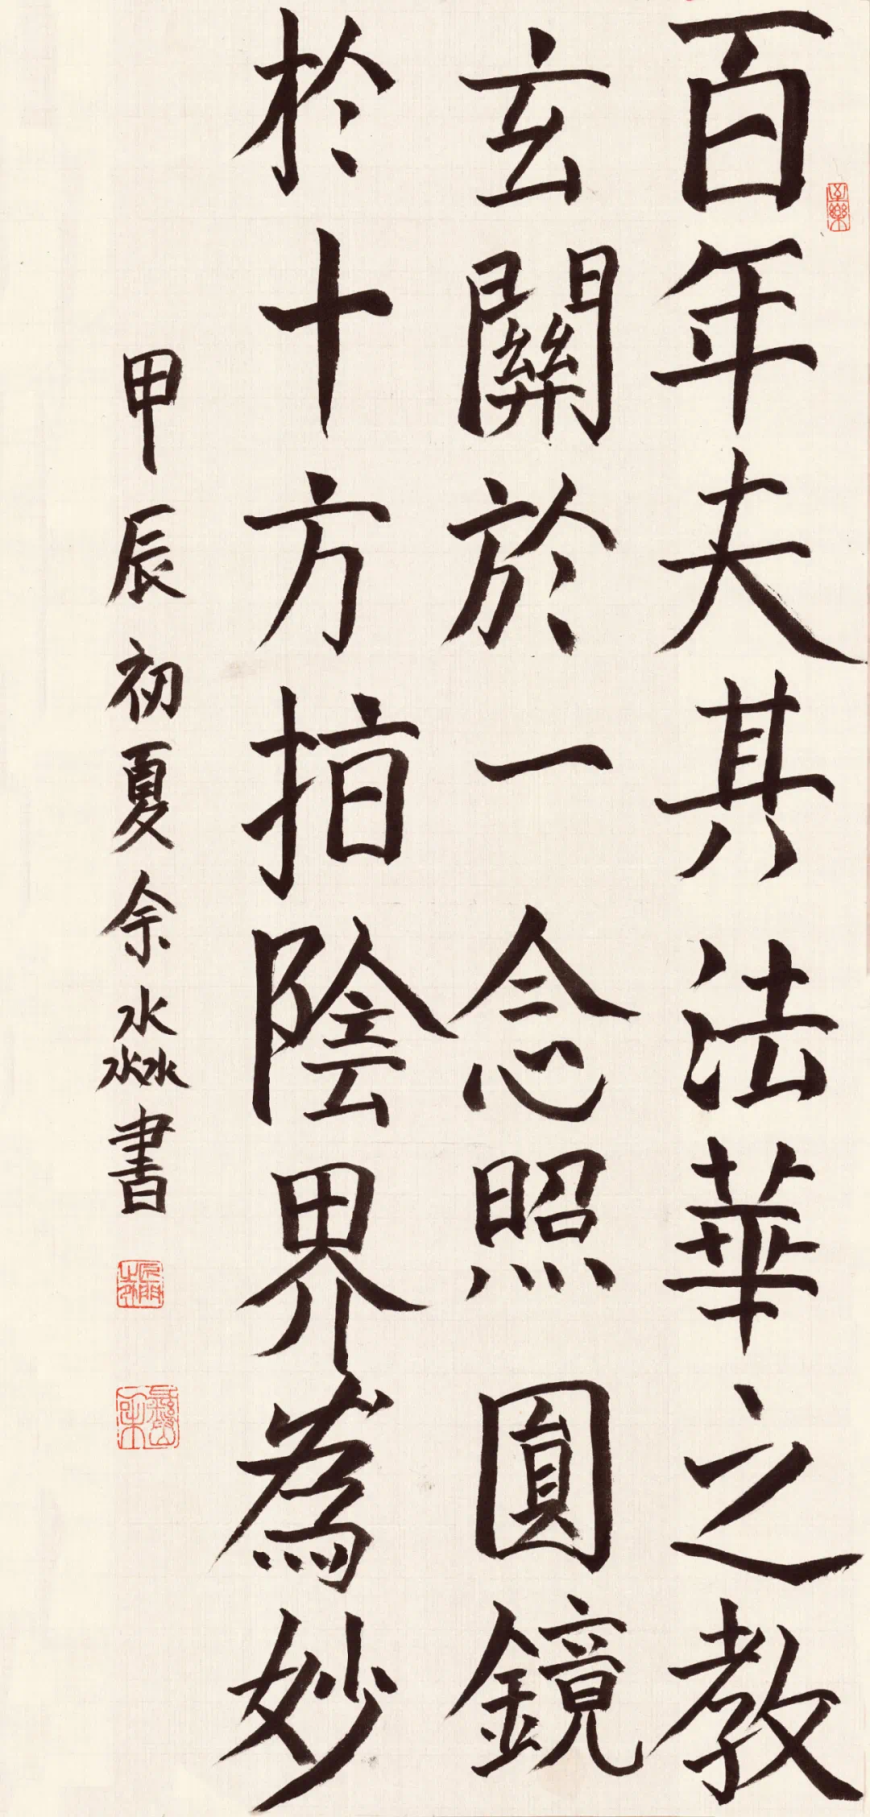 百年夫其法華之教
玄關於一念照圓鏡
於十方指陰界為妙
甲辰初夏余淼書